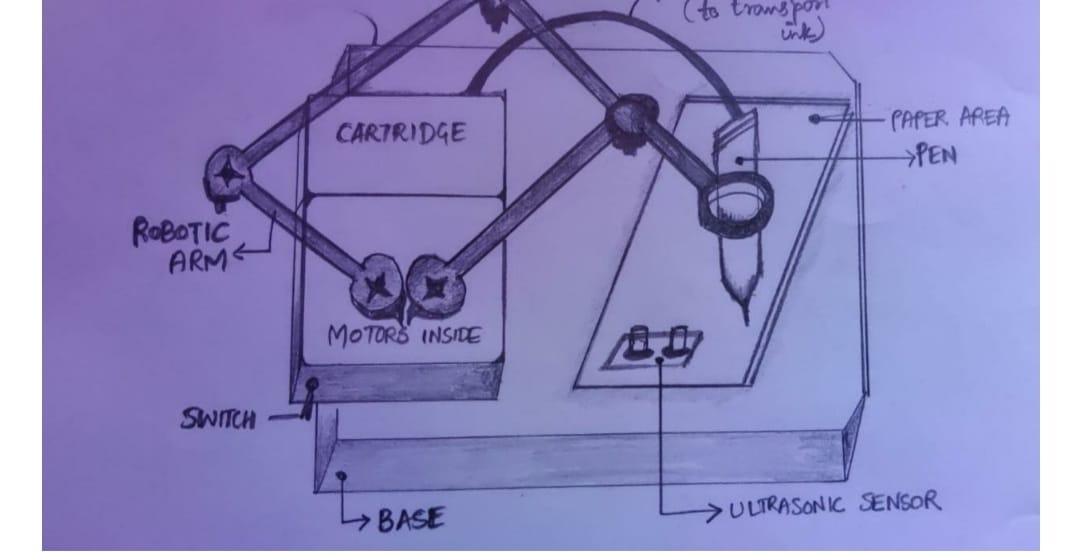 (to transport
ink)
CARTRIDGE
PAPER AREA
PEN
ROBOTIC
ARM
MOTORS INSIDE
SWITCH
BASE
ULTRASONIC SENSOR